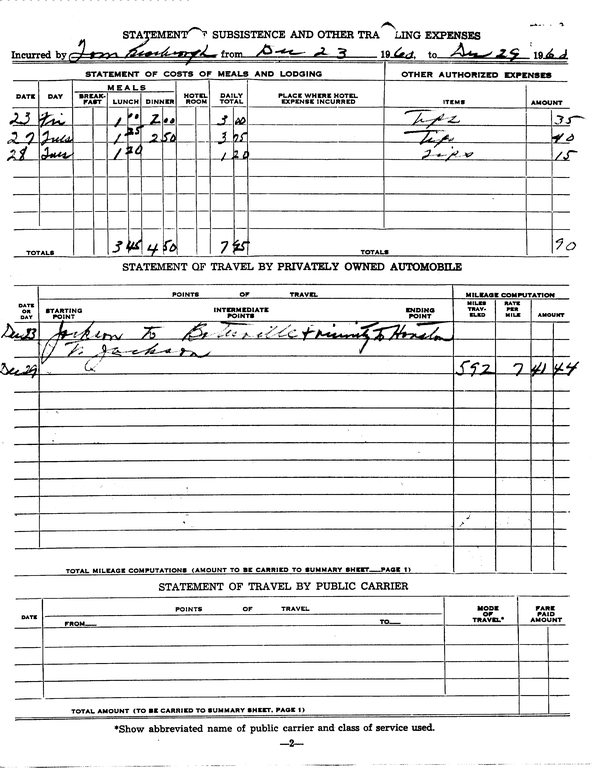 STATEMENT OF SUBSISTENCE AND OTHER TRA LING EXPENSES
Incurred by Tom from Dec 23 1960, to Dec 29 1960
STATEMENT OF COSTS OF MEALS AND LODGING OTHER AUTHORIZED EXPENSES
DATE DAY MEALS BREAK-FAST LUNCH DINNER HOTEL ROOM DAILY TOTAL PLACE WHERE HOTEL EXPENSE INCURRED ITEMS AMOUNT
23 Fri 1 00 2 00 3 00 Tips 35
27 Tues 1 25 2 50 3 75 Tips 40
28 1 20 1 20 Tips 15
TOTALS 3 45 4 50 7 95 TOTALS 90
STATEMENT OF TRAVEL BY PRIVATELY OWNED AUTOMOBILE
POINTS OF TRAVEL MILEAGE COMPUTATION
DATE OR DAY STARTING POINT INTERMEDIATE POINTS ENDING POINT MILES TRAV-ELED RATE PER MILE AMOUNT
Dec 23 Jackson to Batesville + vicinity to Houston
to Jackson
Dec 29 592 7 41 44
TOTAL MILEAGE COMPUTATIONS (AMOUNT TO BE CARRIED TO SUMMARY SHEET—PAGE 1)
STATEMENT OF TRAVEL BY PUBLIC CARRIER
DATE POINTS OF TRAVEL MODE OF TRAVEL* FARE PAID AMOUNT
FROM— TO—
TOTAL AMOUNT (TO BE CARRIED TO SUMMARY SHEET, PAGE 1)
*Show abbreviated name of public carrier and class of service used.
—2—